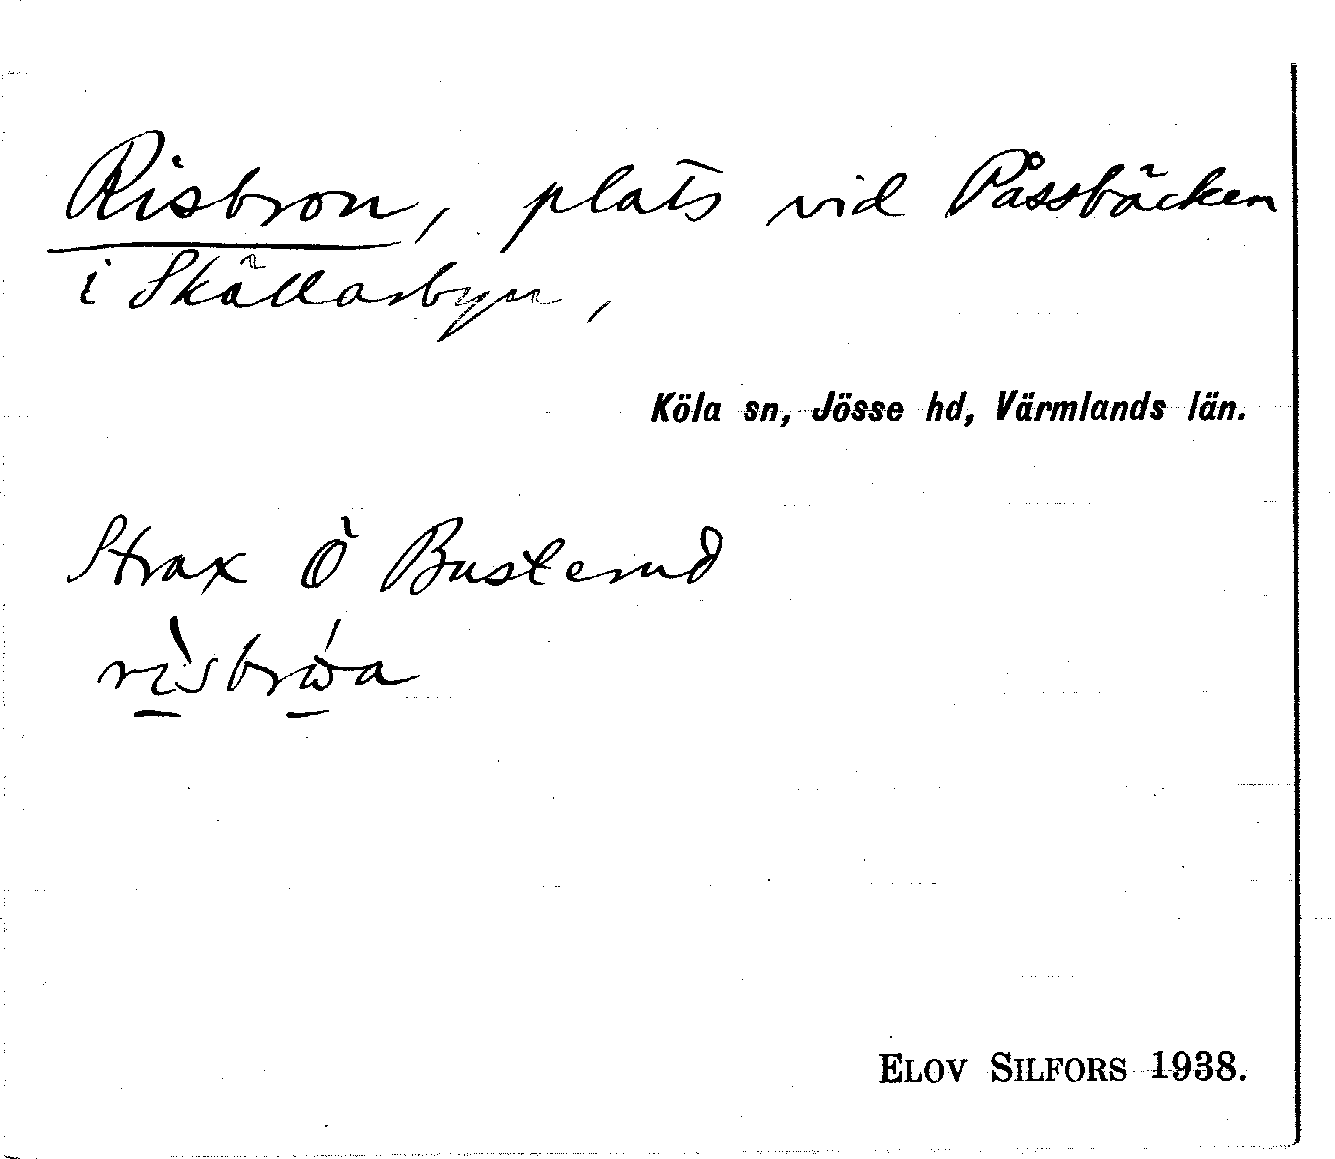 Risbron, plats vid Påssbäcken
i Skällarbyn,
Köla sn, Jösse hd, Värmlands län.
Strax Ö Busterud
rìsbrώa
ELOV SILFORS 1938.